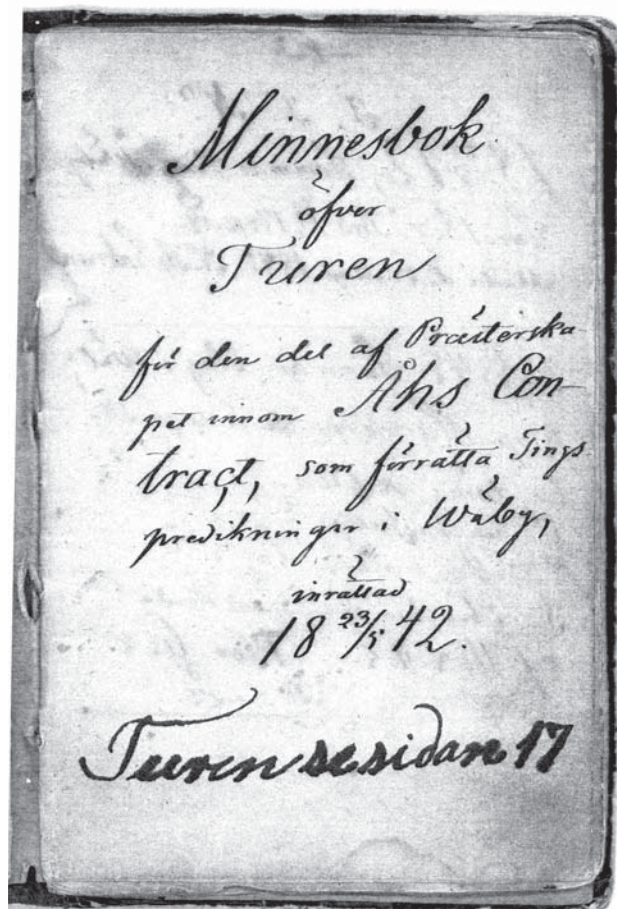 Minnesbok
öfver
Turen
för den del af Prästerska
pet innom Åhs Con-
tract, som förrätta Tings
predikningar i Wäby,
inrättad
18 23/5 42.
Turen se sidan 17